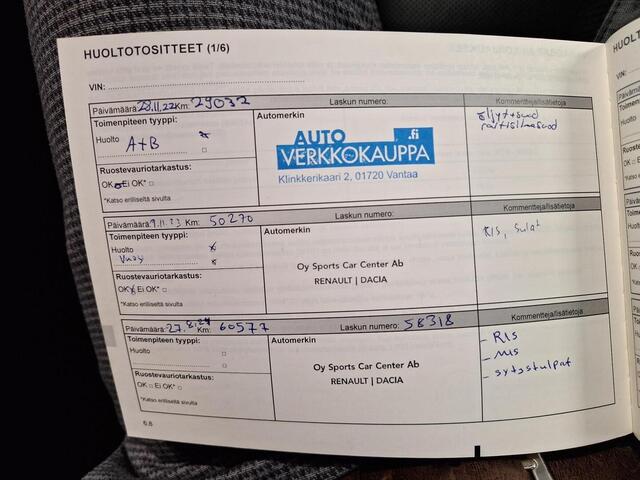 HUOLTOTOSITTEET (1/6)
VIN:
Päivämäärä: 28.11.22 Km: 29032 Laskun numero: Kommentteja/lisätietoja
Toimenpiteen tyyppi: Automerkin
Huolto A+B
öljyt+suod
raitisilmasuod
AUTO .fi
VERKKOKAUPPA
Klinkkerikaari 2, 01720 Vantaa
Ruostevauriotarkastus:
OK □ Ei OK* □
*Katso erilliseltä sivulta
Päivämäärä: 9.11.23 Km: 50270 Laskun numero: Kommentteja/lisätietoja
Toimenpiteen tyyppi: Automerkin
Huolto
RIS, Sulat
Oy Sports Car Center Ab
RENAULT | DACIA
Ruostevauriotarkastus:
OK □ Ei OK* □
*Katso erilliseltä sivulta
Päivämäärä: 27.8.24 Km: 60577 Laskun numero: 58318 Kommentteja/lisätietoja
Toimenpiteen tyyppi: Automerkin
Huolto □
- RIS
- MIS
- sytostulpat
Oy Sports Car Center Ab
RENAULT | DACIA
Ruostevauriotarkastus:
OK □ Ei OK* □
*Katso erilliseltä sivulta
6.8
HUOLT
VIN: